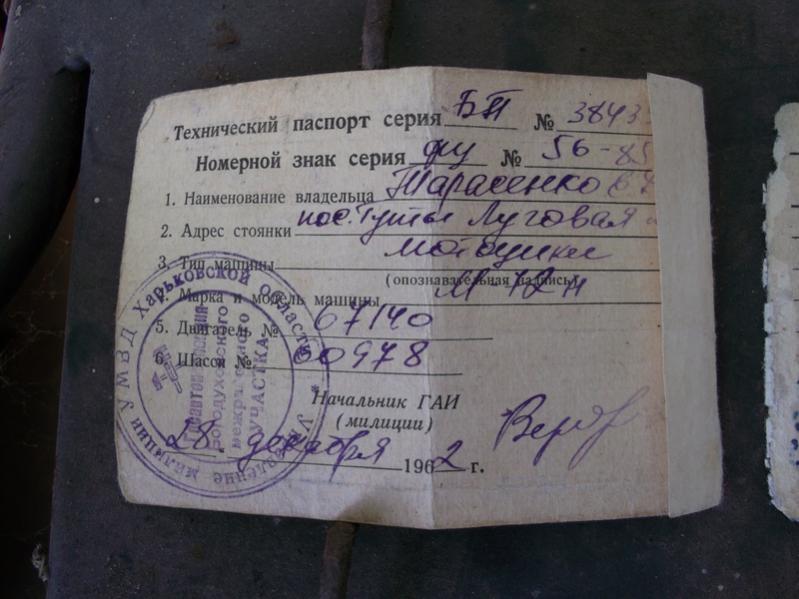 Технический паспорт серия БТ № 3843
Номерной знак серия фу № 56-85
1. Наименование владельца Тарасенко
2. Адрес стоянки пос. Гуты Луговая
3. Тип машины мотоцикл
(опознавательная надпись)
4. Марка и модель машины М 72 Н
5. Двигатель № 67140
6. Шасси № 60978
Начальник ГАИ
(милиции)
28 декабря 1962 г.
Управление милиции УМВД Харьковской области
Богодуховского
межрайонного
УЧАСТКА